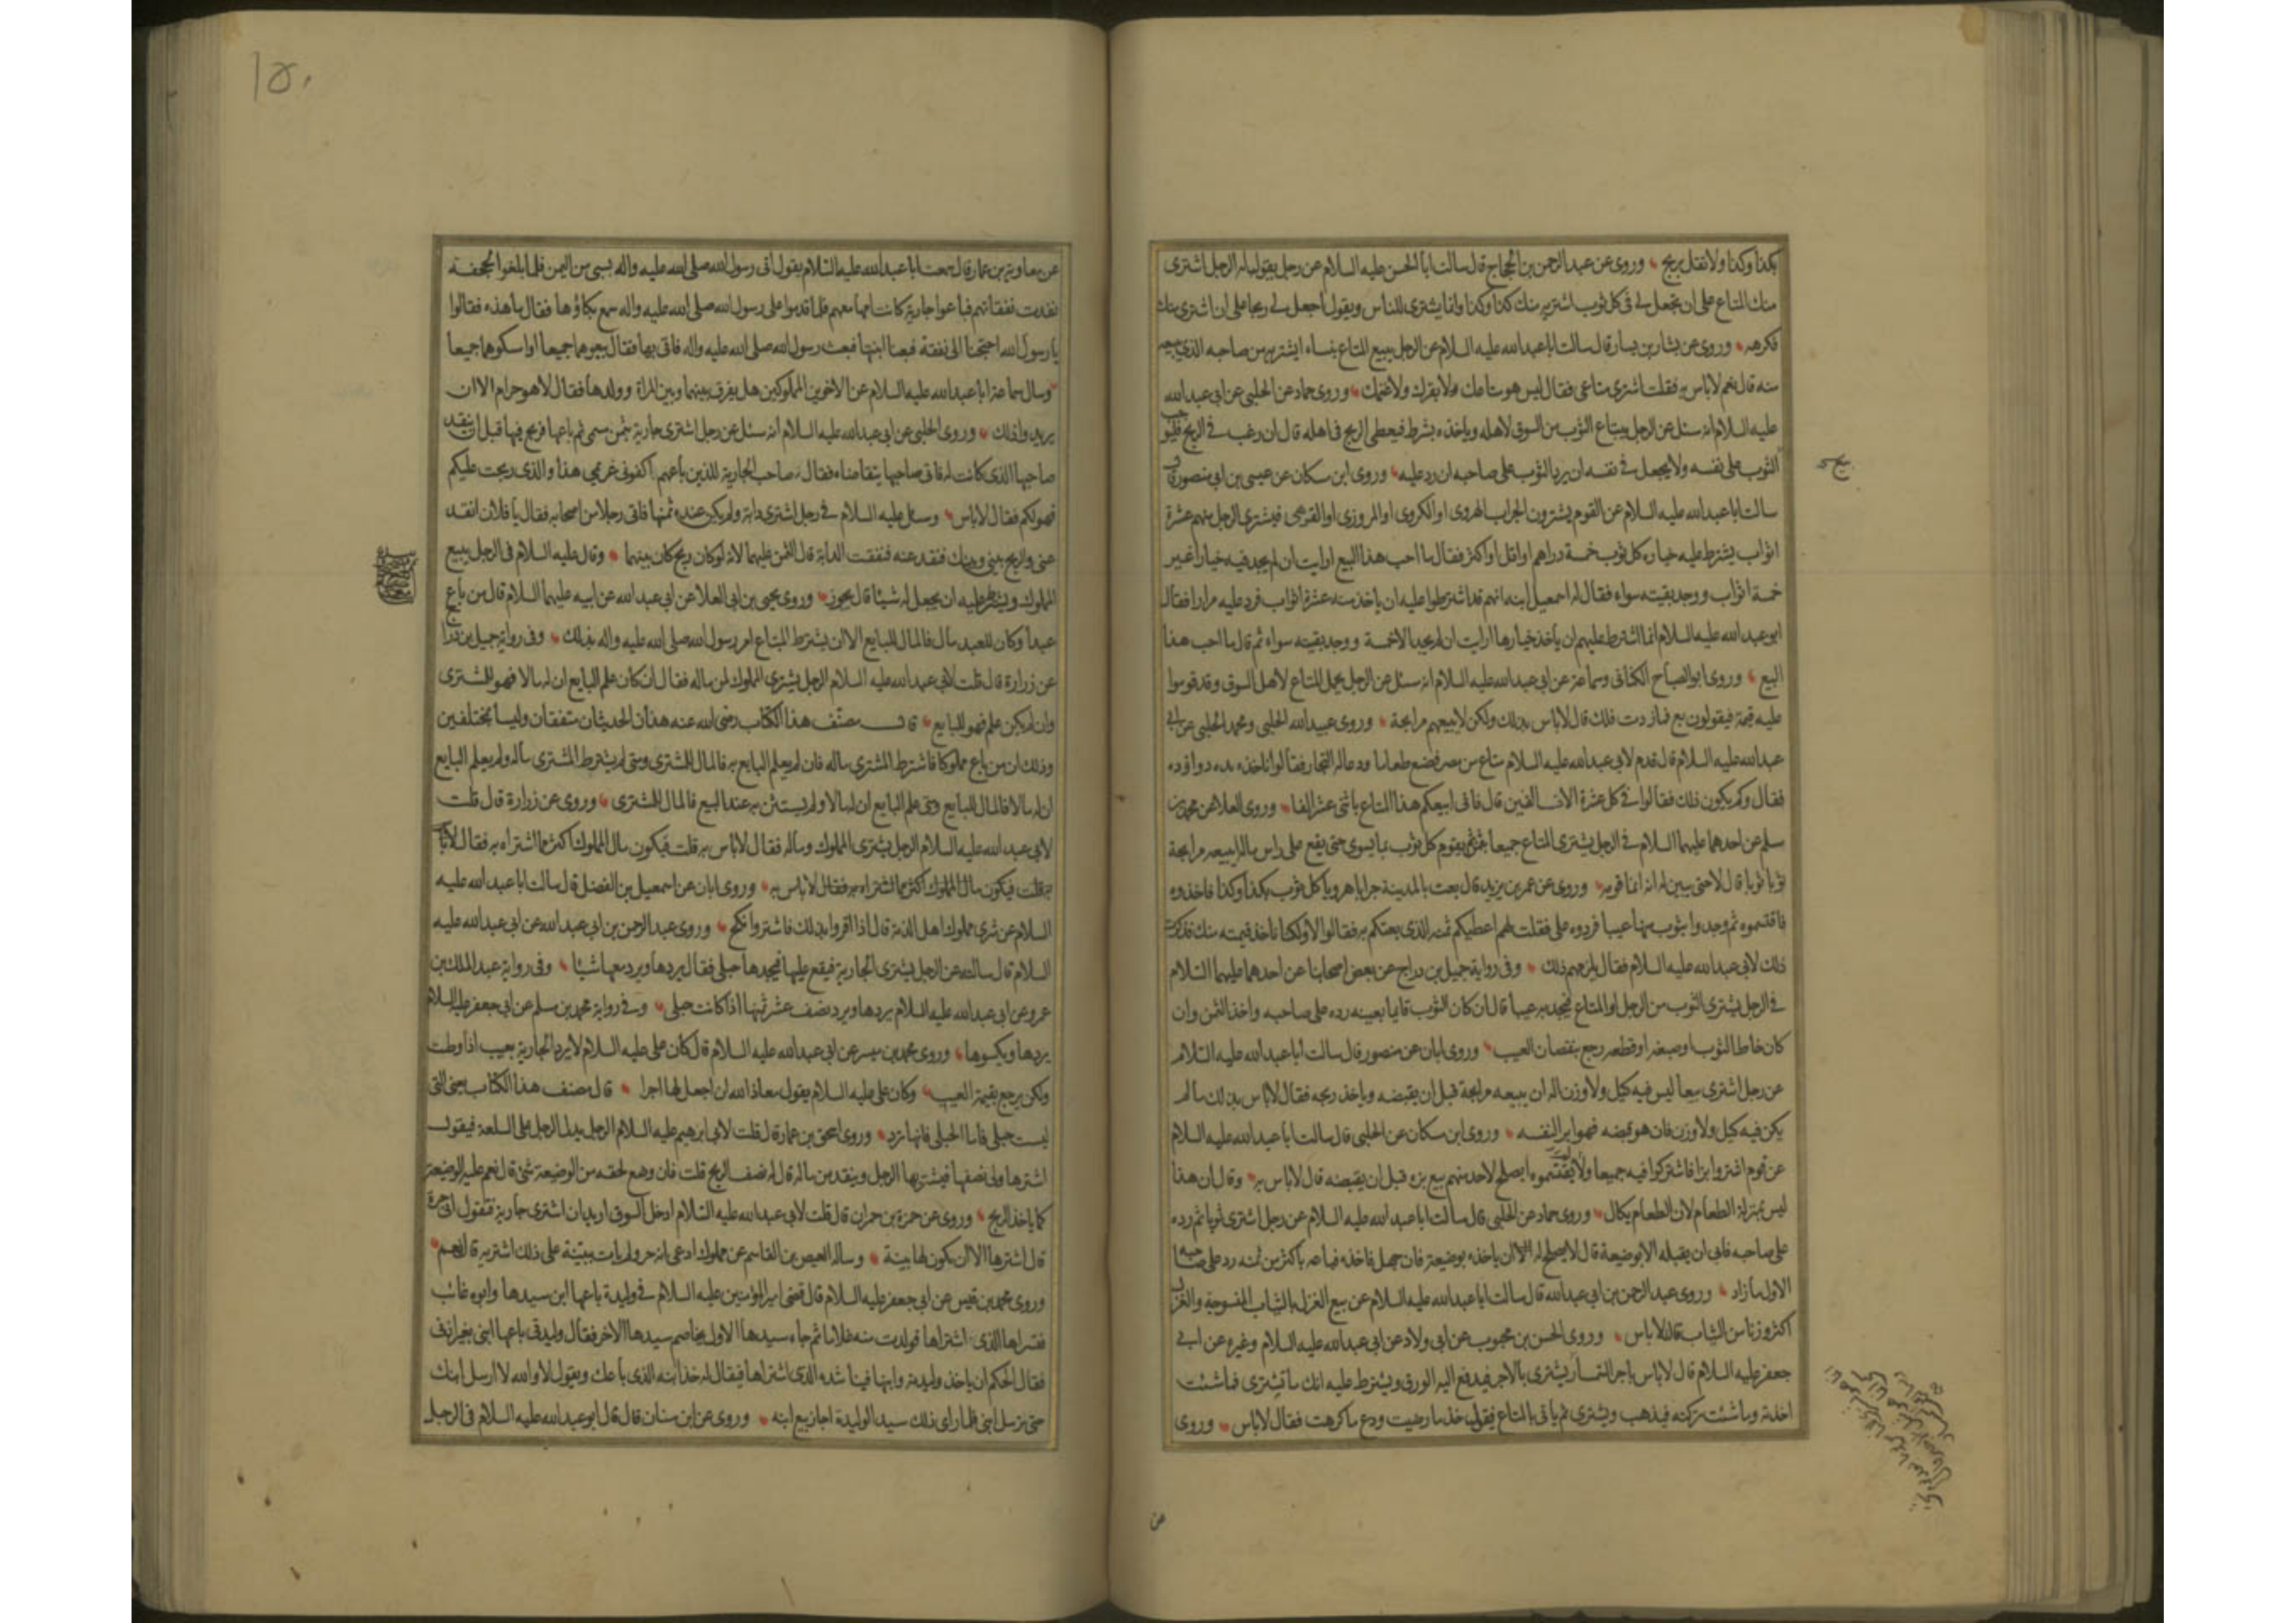 بكذا وكذا ولا تقل بربح وروى عن عبد الرحمن بن الحجاج قال سالت ابا الحسن عليه السلام عن رجل يقول له الرجل اشترى
منك المتاع على ان تجعل لى فى كل ثوب اشتريه منك كذا وكذا وانما يشترى للناس ويقول اجعل لى ربحا على ان اشترى منك
فكرهه وروى عن بشار بن يسار قال سالت ابا عبد الله عليه السلام عن الرجل يبيع المتاع بنساء ايشتريه من صاحبه الذى يبيعه
منه قال نعم لا باس به فقلت اشترى متاعى فقال ليس هو متاعك ولا بقرك ولا غنمك وروى حماد عن الحلبى عن ابى عبد الله
عليه السلام انه سئل عن الرجل يبتاع الثوب من السوق لاهله وياخذه بشرط فيعطى الربح فى اهله قال ان رغب فى الربح فليوجب
الثوب على نفسه ولا يجعل فى نفسه ان يرد الثوب على صاحبه ان رد عليه وروى ابن مسكان عن عيسى بن ابى منصور قال
سالت ابا عبد الله عليه السلام عن القوم يشترون الجراب الهروى او الكروى او المروزى او القوهى فيشترى الرجل منهم عشرة
اثواب يشترط عليه خياره كل ثوب خمسة دراهم او اقل او اكثر فقال ما احب هذا البيع ارايت ان لم يجد فيه خيارا غير
خمسة اثواب ووجد بقيته سواء فقال له اسمعيل ابنه انهم قد اشترطوا عليه ان ياخذ منه عشرة اثواب فرد عليه مرارا فقال
ابو عبد الله عليه السلام انما اشترط عليهم ان ياخذ خيارها ارايت ان لم يجد الا خمسة ووجد بقيته سواء ثم قال ما احب هذا
البيع وروى ابو الصباح الكنانى وسماعة عن ابى عبد الله عليه السلام انه سئل عن الرجل يحمل المتاع لاهل السوق وقد قوموا
عليه قيمة فيقولون بع فما زدت فلك قال لا باس بذلك ولكن لا يبيعهم مرابحة وروى عبيد الله الحلبى ومحمد الحلبى عن ابى
عبد الله عليه السلام قال قدم لابى عبد الله عليه السلام متاع من مصر فصنع طعاما ودعا له التجار فقالوا ناخذه بده دوازده
فقال وكم يكون ذلك فقالوا فى كل عشرة الاف الفين قال فانى ابيعكم هذا المتاع باثنى عشر الفا وروى العلا عن محمد بن
مسلم عن احدهما عليهما السلام فى الرجل يشترى المتاع جميعا بثمن ثم يقوم كل ثوب بما يسوى حتى يقع على راس ماله ايبيعه مرابحة
ثوبا ثوبا قال لا حتى يبين له انه انما قومه وروى عن عمر بن يزيد قال بعت بالمدينة جرابا هرويا كل ثوب بكذا وكذا فاخذوه
فاقتسموه ثم وجدوا بثوب منها عيبا فردوه على فقلت لهم اعطيكم ثمنه الذى بعتكم به فقالوا لا ولكنا ناخذ قيمته منك فذكرت
ذلك لابى عبد الله عليه السلام فقال يلزمهم ذلك وفى رواية جميل بن دراج عن بعض اصحابنا عن احدهما عليهما السلام
فى الرجل يشترى الثوب من الرجل او المتاع فيجد به عيبا قال ان كان الثوب قايما بعينه رده على صاحبه واخذ الثمن وان
كان خاط الثوب او صبغه او قطعه رجع بنقصان العيب وروى ابان عن منصور قال سالت ابا عبد الله عليه السلام
عن رجل اشترى بيعا ليس فيه كيل ولا وزن اله ان يبيعه مرابحة قبل ان يقبضه وياخذ ربحه فقال لا باس بذلك ما لم
يكن فيه كيل ولا وزن فان هو قبضه فهو ابرا لنفسه وروى ابن مسكان عن الحلبى قال سالت ابا عبد الله عليه السلام
عن قوم اشتروا بزا فاشتركوا فيه جميعا ولم يقتسموه ايصلح لاحد منهم بيع بزه قبل ان يقبضه قال لا باس به وقال ان هذا
ليس بمنزلة الطعام لان الطعام يكال وروى حماد عن الحلبى قال سالت ابا عبد الله عليه السلام عن رجل اشترى ثوبا ثم رده
على صاحبه فابى ان يقبله الا بوضيعة قال لا يصلح له الا ان ياخذه بوضيعة فان جهل فاخذه فباعه باكثر من ثمنه رد على صاحبه
الاول ما زاد وروى عبد الرحمن بن ابى عبد الله قال سالت ابا عبد الله عليه السلام عن بيع الغزل بالثياب المنسوجة والغزل
اكثر وزنا من الثياب قال لا باس وروى الحسن بن محبوب عن ابى ولاد عن ابى عبد الله عليه السلام وغيره عن ابى
جعفر عليه السلام قال لا باس باجر السمسار يشترى بالاجر فيدفع اليه الورق ويشترط عليه انك ما تشترى فما شئت
اخذته وما شئت تركته فيذهب ويشترى ثم ياتى بالمتاع فيقول خذ ما رضيت ودع ما كرهت فقال لا باس وروى
عن
١٥٠
عن معاوية بن عمار قال سمعت ابا عبد الله عليه السلام يقول اتى رسول الله صلى الله عليه واله بسبى من اليمن فلما بلغوا الجحفة
نفدت نفقاتهم فباعوا جارية كانت امها معهم فلما قدموا على رسول الله صلى الله عليه واله سمع بكاؤها فقال ما هذه فقالوا
يا رسول الله احتجنا الى نفقة فبعنا ابنتها فبعث رسول الله صلى الله عليه واله فاتى بها فقال بيعوهما جميعا او امسكوهما جميعا
وسال سماعة ابا عبد الله عليه السلام عن الاخوين المملوكين هل يفرق بينهما وبين المراة وولدها فقال لا هو حرام الا ان
يريدوا ذلك وروى الحلبى عن ابى عبد الله عليه السلام انه سئل عن رجل اشترى جارية بثمن مسمى ثم باعها فربح فيها قبل ان ينقد
صاحبها الذى كانت له فاتى صاحبها يتقاضاه فقال صاحب الجارية للذين باعهم اكفونى غريمى هذا والذى ربحت عليكم
فهو لكم فقال لا باس وسئل عليه السلام فى رجل اشترى دابة ولم يكن عنده ثمنها فاتى رجلا من اصحابه فقال يا فلان انقد
عنى والربح بينى وبينك فنقد عنه فنفقت الدابة قال الثمن عليهما لانه لو كان ربح كان بينهما وقال عليه السلام فى الرجل يبيع
المملوك ويشترط عليه ان يجعل له شيئا قال يجوز وروى يحيى بن ابى العلا عن ابى عبد الله عن ابيه عليهما السلام قال من باع
عبدا وكان للعبد مال فالمال للبايع الا ان يشترط المبتاع امر رسول الله صلى الله عليه واله بذلك وفى رواية جميل بن دراج
عن زرارة قال قلت لابى عبد الله عليه السلام الرجل يشترى المملوك لمن ماله فقال ان كان علم البايع ان له مالا فهو للمشترى
وان لم يكن علم فهو للبايع قال مصنف هذا الكتاب رضى الله عنه هذان الحديثان متفقان وليسا بمختلفين
وذلك ان من باع مملوكا فاشترط المشترى ماله فان لم يعلم البايع به فالمال للمشترى ومتى لم يشترط المشترى ماله ولم يعلم البايع
ان له مالا فالمال للبايع ومتى علم البايع ان له مالا ولم يستثن به عند البيع فالمال للمشترى وروى عن زرارة قال قلت
لابى عبد الله عليه السلام الرجل يشترى المملوك وماله فقال لا باس به قلت فيكون مال المملوك اكثر مما اشتراه به فقال لا باس
به قلت فيكون مال المملوك اكثر مما اشتراه به فقال لا باس به وروى ابان عن اسمعيل بن الفضل قال سالت ابا عبد الله عليه
السلام عن شرى مملوك اهل الذمة قال اذا اقروا بذلك فاشتر وانكح وروى عبد الرحمن بن ابى عبد الله عن ابى عبد الله عليه
السلام قال سالته عن الرجل يشترى الجارية فيقع عليها فيجدها حبلى فقال يردها ويرد معها شيئا وفى رواية عبد الملك بن
عمرو عن ابى عبد الله عليه السلام يردها ويرد نصف عشر ثمنها اذا كانت حبلى وفى رواية محمد بن مسلم عن ابى جعفر عليه السلام
يردها ويكسوها وروى محمد بن ميسر عن ابى عبد الله عليه السلام قال كان على عليه السلام لا يرد الجارية بعيب اذا وطئت
ولكن يرجع بقيمة العيب وكان على عليه السلام يقول معاذ الله ان اجعل لها اجرا قال مصنف هذا الكتاب يعنى التى
ليست حبلى فاما الحبلى فانها ترد وروى اسحق بن عمار قال قلت لابى ابرهيم عليه السلام الرجل يدل الرجل على السلعة فيقول
اشترها ولى نصفها فيشتريها الرجل وينقد من ماله قال له نصف الربح قلت فان وضع لحقه من الوضيعة شئ قال نعم عليه الوضيعة
كما ياخذ الربح وروى عن حمزة بن حمران قال قلت لابى عبد الله عليه السلام ادخل السوق اريد ان اشترى جارية فتقول انى حرة
قال اشترها الا ان يكون لها بينة وساله العيص بن القاسم عن مملوك ادعى انه حر ولم يات ببينة على ذلك اشتريه قال نعم
وروى محمد بن قيس عن ابى جعفر عليه السلام قال قضى امير المؤمنين عليه السلام فى وليدة باعها ابن سيدها وابوه غائب
فتسراها الذى اشتراها فولدت منه غلاما ثم جاء سيدها الاول يخاصم سيدها الاخر فقال وليدتى باعها ابنى بغير اذنى
فقال الحكم ان ياخذ وليدته وابنها فيناشده الذى اشتراها فيقال له خذ ابنه الذى باعك ويقول لا والله لا ارسل ابنك
حتى ترسل ابنى فلما راى ذلك سيد الوليدة اجاز بيع ابنه وروى عن ابن سنان قال قال ابو عبد الله عليه السلام فى الرجل